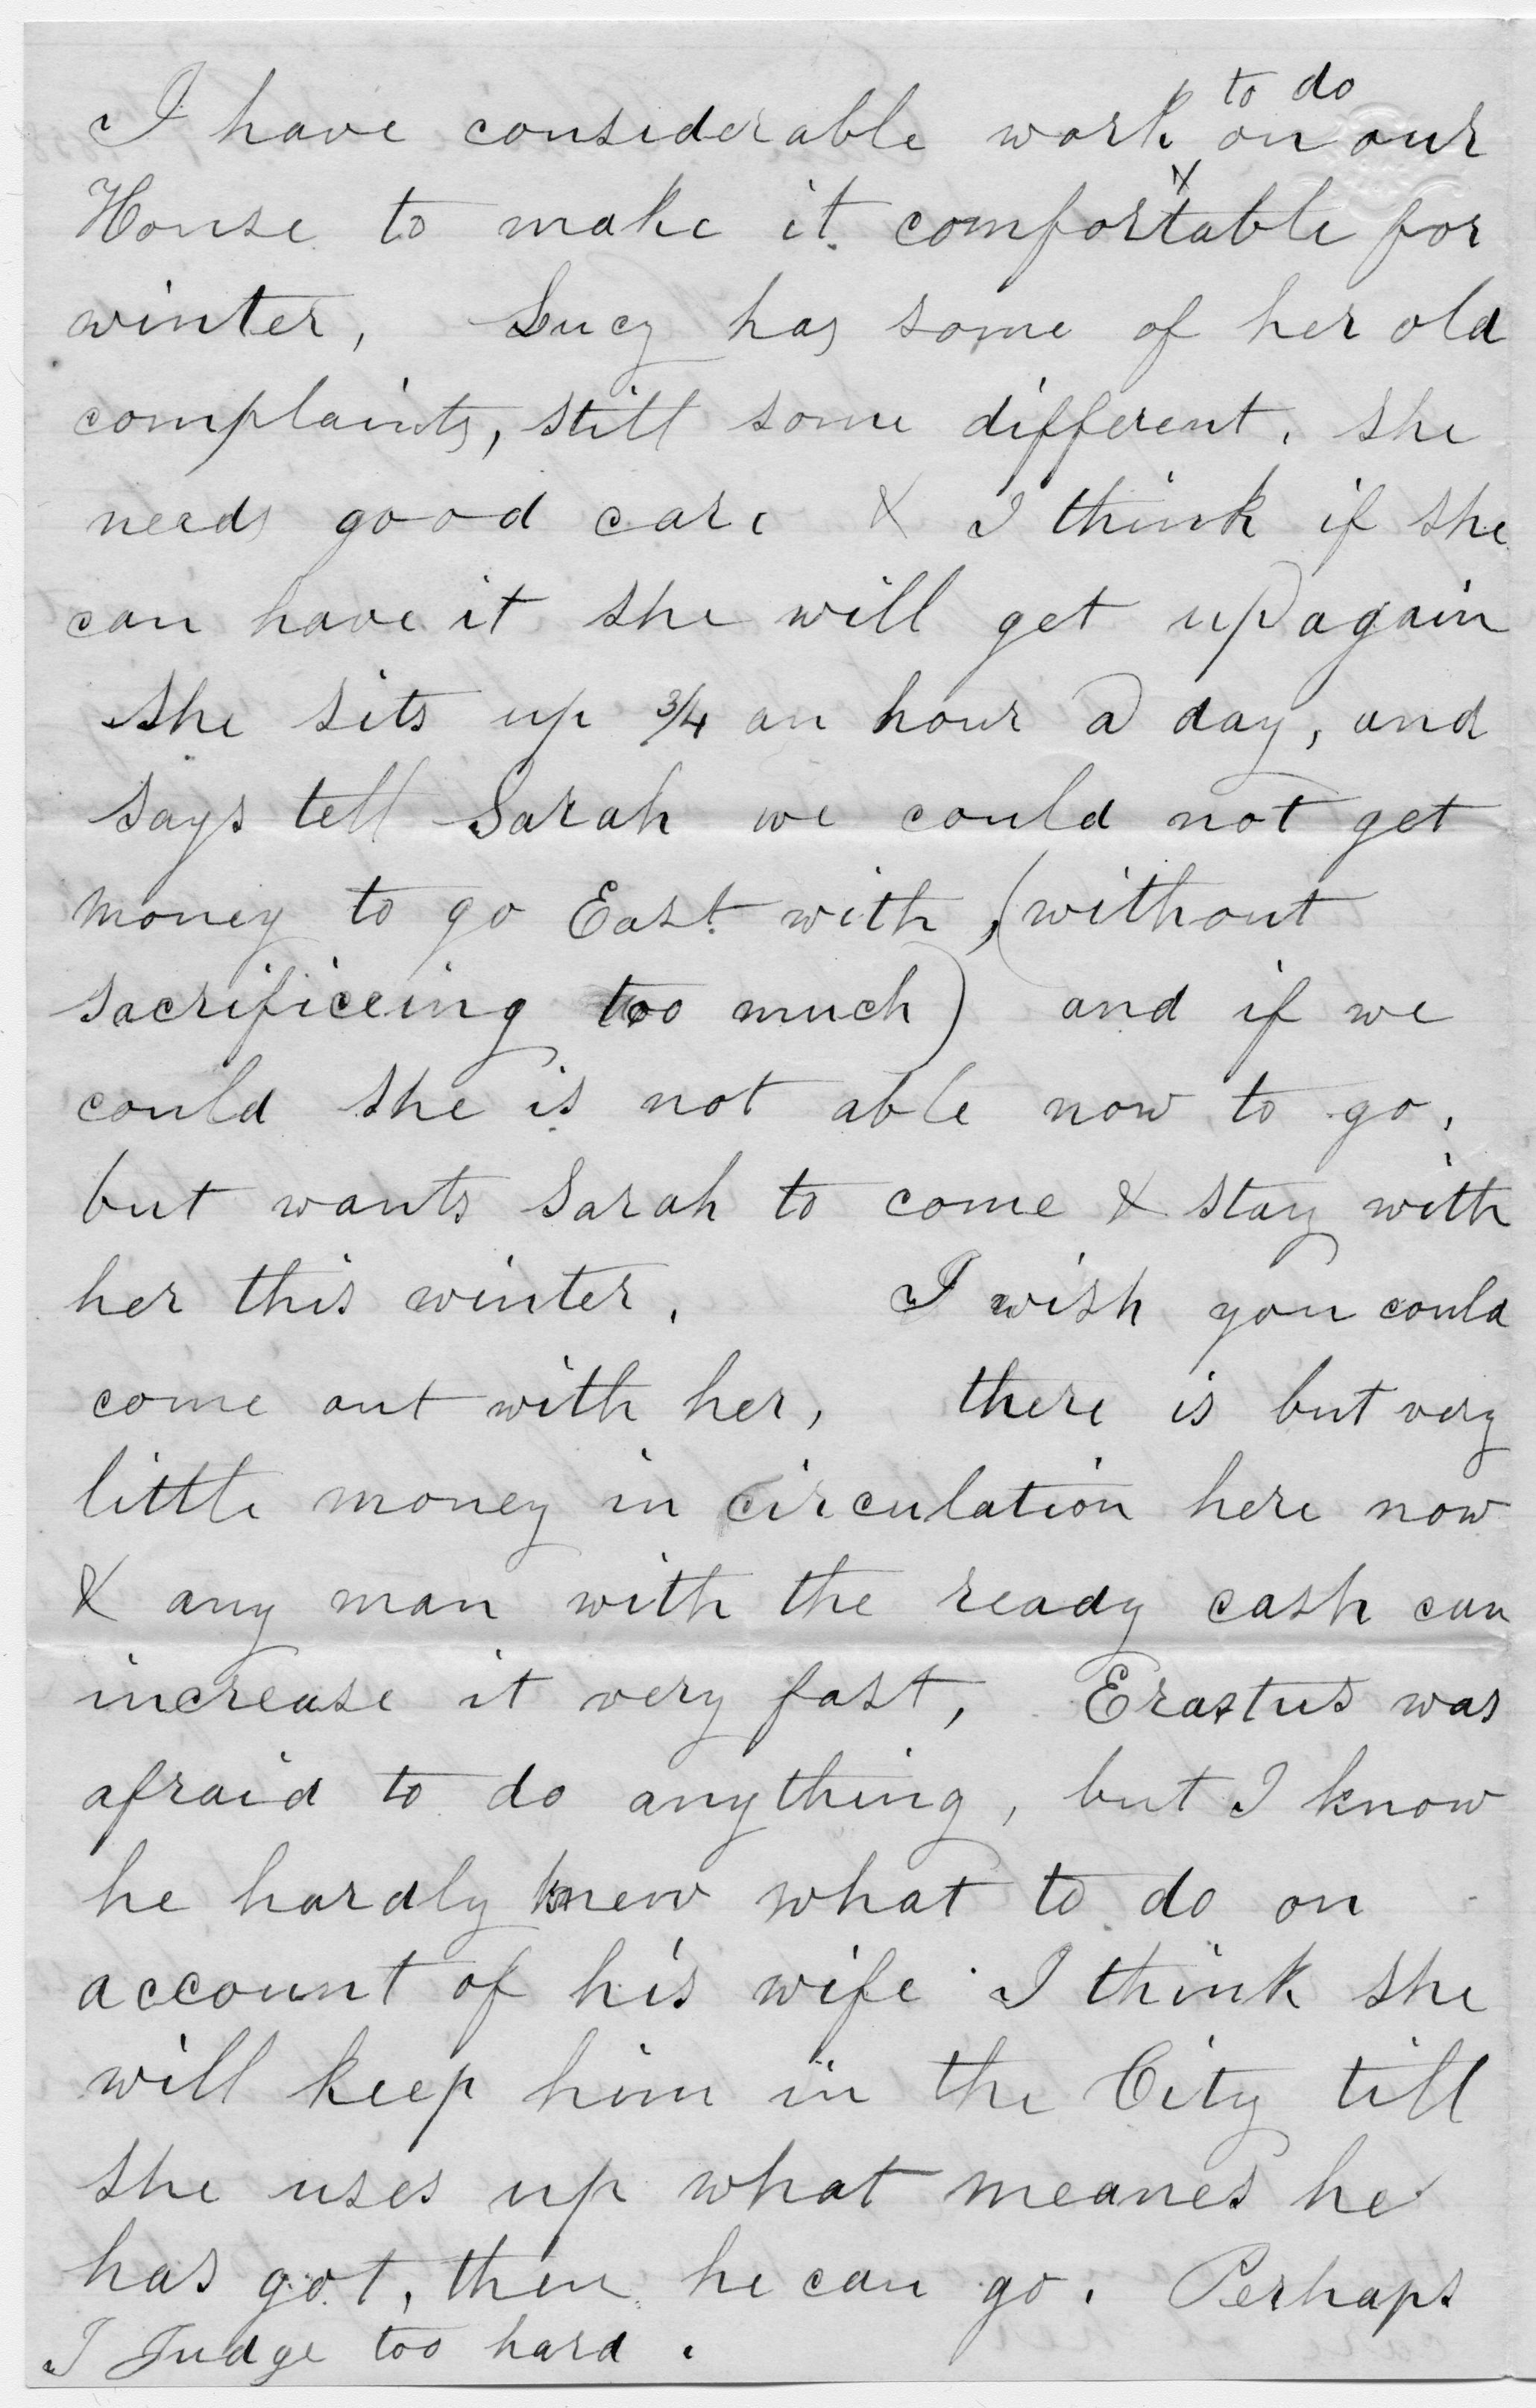 I have considerable work to do on our
House to make it comfortable for
winter, Lucy has some of her old
complaints, still some different. she
needs good care & I think if she
can have it she will get up again
she sits up 3/4 an hour a day, and
says tell Sarah we could not get
money to go East with, (without
sacrificeing too much) and if we
could she is not able now to go,
but wants Sarah to come & stay with
her this winter. I wish you could
come out with her, there is but very
little money in circulation here now
& any man with the ready cash can
increase it very fast, Erastus was
afraid to do anything, but I know
he hardly knew what to do on
account of his wife. I think she
will keep him in the City till
she uses up what meanes he
has got, then he can go. Perhaps
I Judge too hard.